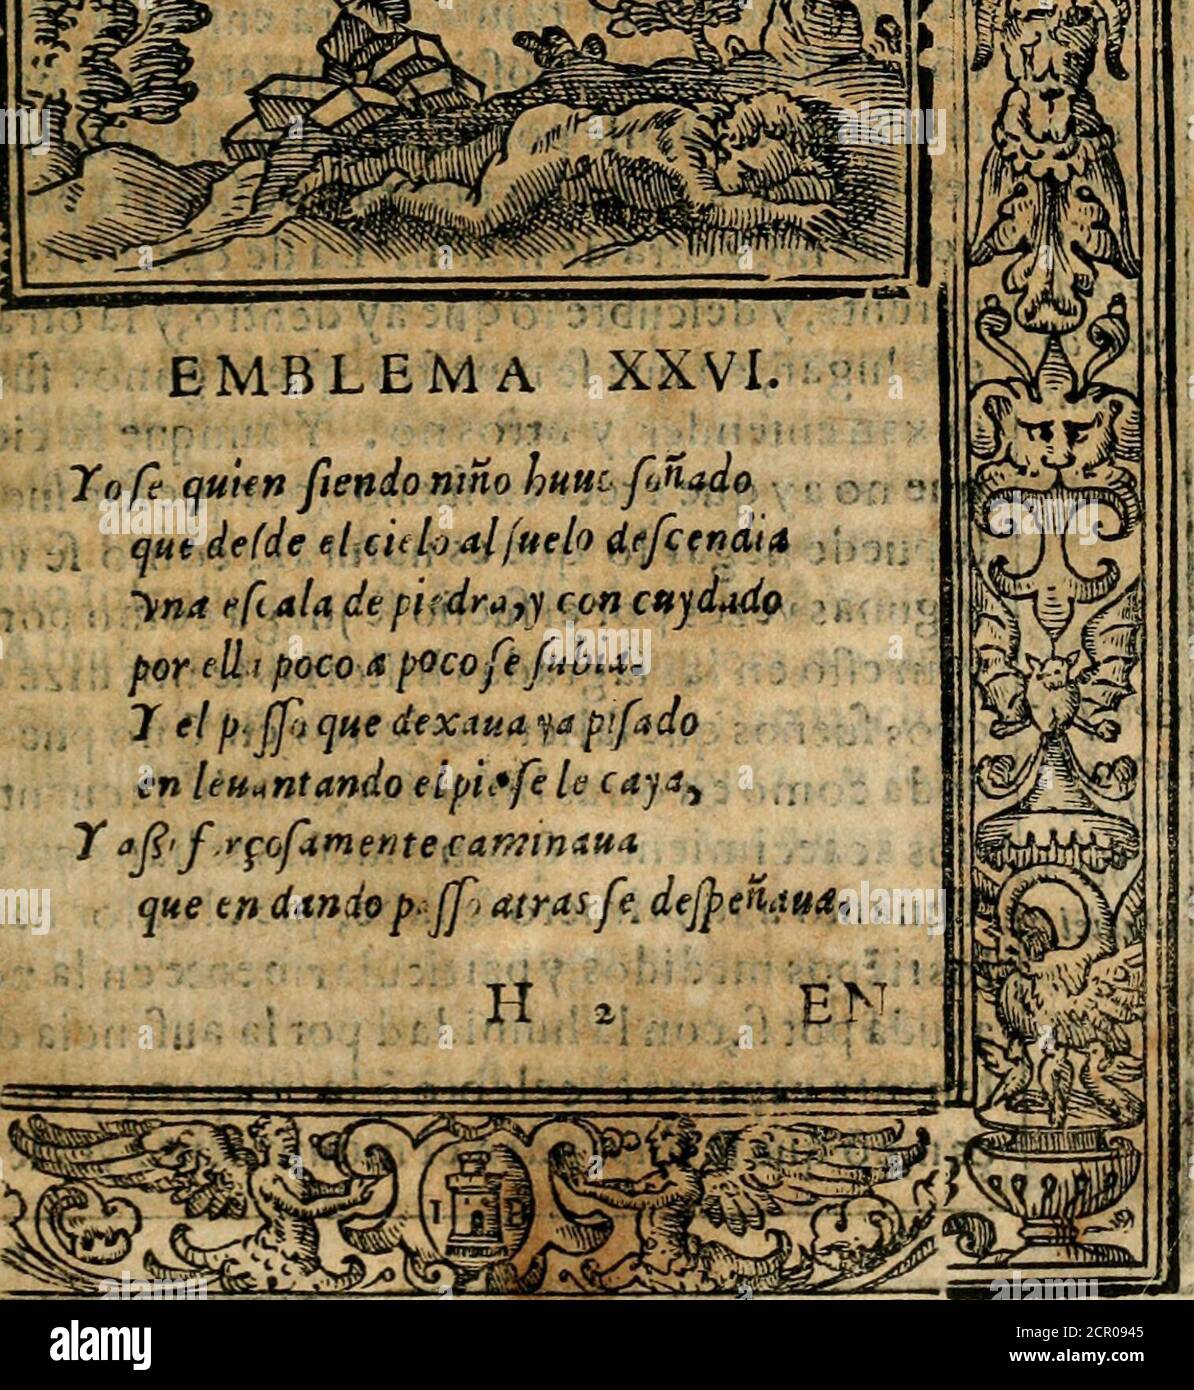 EMBLEMA XXVI.
Yo ſe quien ſiendo niño huuo ſoñado
que deſde el cielo al ſuelo deſcendia
vna eſcala de piedra, y con cuydado
por ella poco a poco ſe ſubia.
Y el paſſo que dexaua ya piſado
en leuantando el pie ſe le caya,
Y aſsi forçoſamente caminaua
que en dando paſſo atras ſe deſpeñaua.
H 2 EN
I B
alamy
Image ID: 2CR0945
www.alamy.com